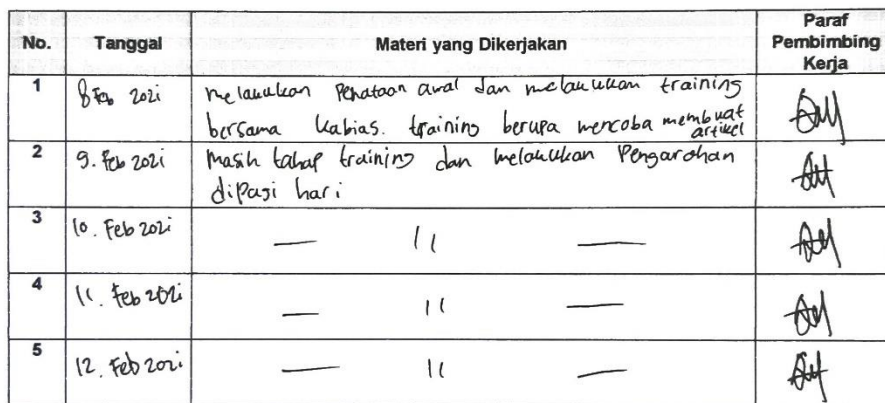 No. Tanggal Materi yang Dikerjakan Paraf Pembimbing Kerja
1 8 Feb 2021 melakukan Penataan awal dan melakukan training
bersama kabias. training berupa mencoba membuat artikel
2 9. Feb 2021 Masih tahap training dan melakukan Pengarahan
dipagi hari
3 10. Feb 2021 — 11 —
4 11. Feb 2021 — 11 —
5 12. Feb 2021 — 11 —